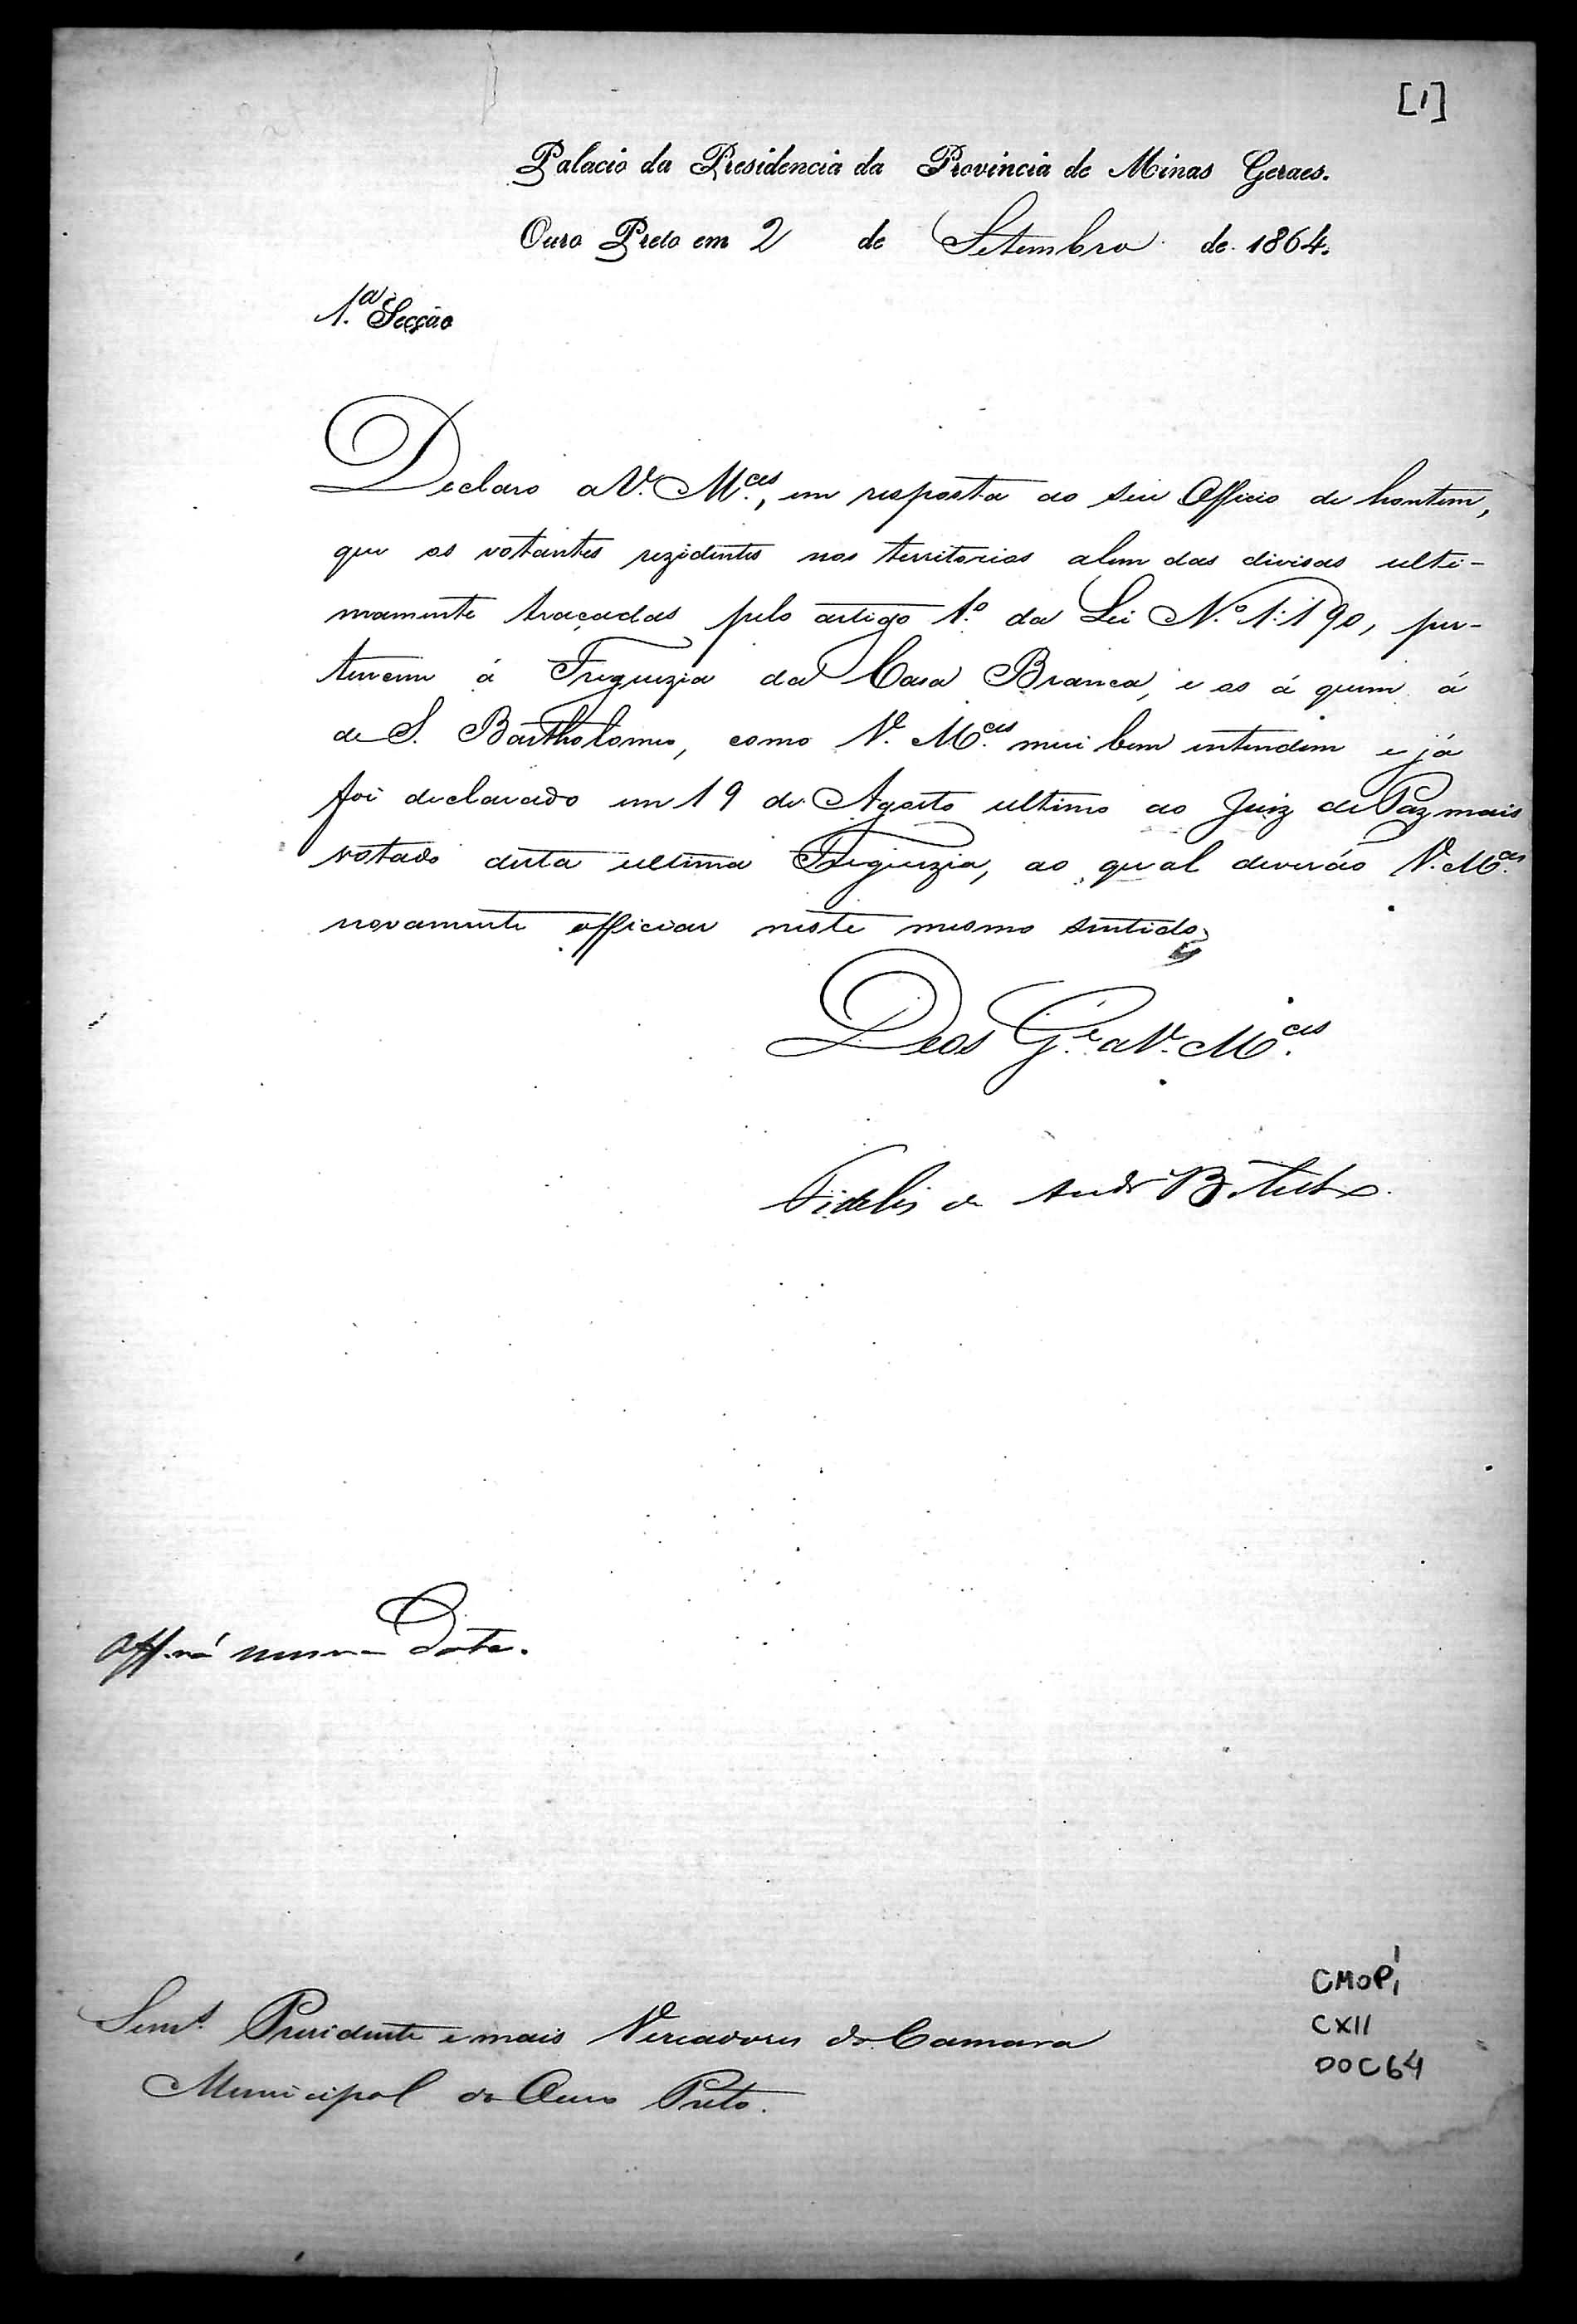 [1]
Palacio da Presidencia da Provincia de Minas Geraes.
Ouro Preto em 2 de Setembro de 1864.
1.ª Secção
Declaro a V. M.ces, em resposta ao seu Officio de hontem,
que os votantes rezidentes nos territorios alem das divisas ulti-
mamente traçadas pelo artigo 1.º da Lei N.º 1:190, per-
tencem á Freguezia da Casa Branca, e os á quem á
de S. Bartholomeo, como V. M.ces mui bem entendem e já
foi declarado em 19 de Agosto ultimo ao Juiz de Paz mais
votado desta ultima Freguezia, ao qual deveráo V. M.ces
novamente officiar neste mesmo sentido.
Deos G.e a V. M.ces
Fidelis de Andr.e Botelho.
Off. na mesma Data.
Senr.s Presidente e mais Vereadores da Camara
Municipal do Ouro Preto.
CMOP,
CXII
DOC64